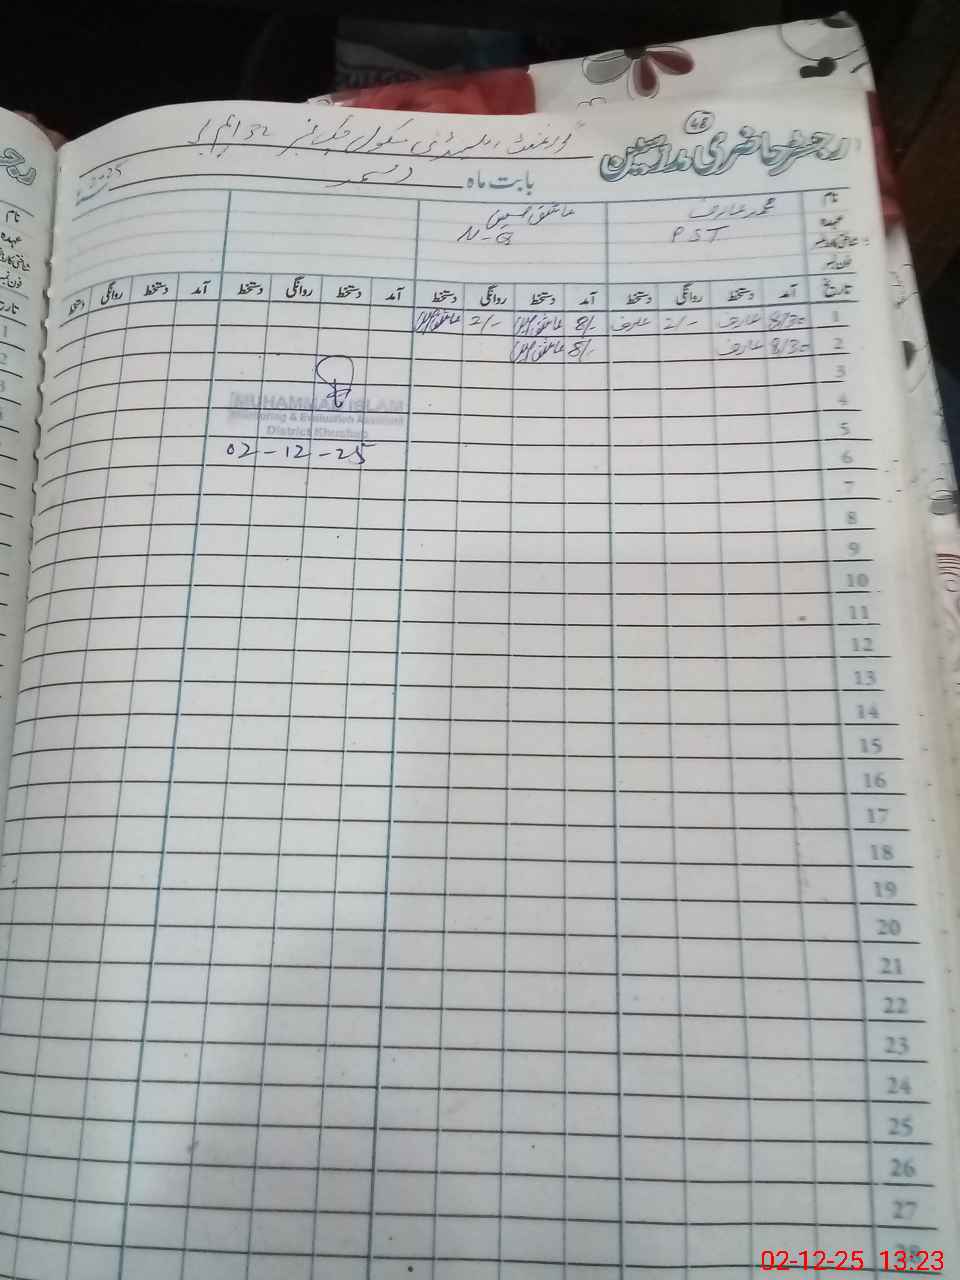 48
رجسٹر حاضری مدرسین
گورنمنٹ پرائمری سکول چک نمبر 32 ایم بی
بابت ماہ دسمبر 2025ء
نام محمد عارف عاشق حسین
عہدہ PST N-Q
شناختی کارڈ نمبر
فون نمبر
تاریخ آمد دستخط روانگی دستخط آمد دستخط روانگی دستخط آمد دستخط روانگی دستخط آمد دستخط روانگی دستخط
1 8/30 عارف 2/- عارف 8/- عاشق حسین 2/- عاشق حسین
2 8/30 عارف 8/- عاشق حسین
3
4
5
6
7
8
9
10
11
12
13
14
15
16
17
18
19
20
21
22
23
24
25
26
27
28
MUHAMMAD ISLAM
Monitoring & Evaluation Assistant
District Khushab
02-12-25
02-12-25 13:23